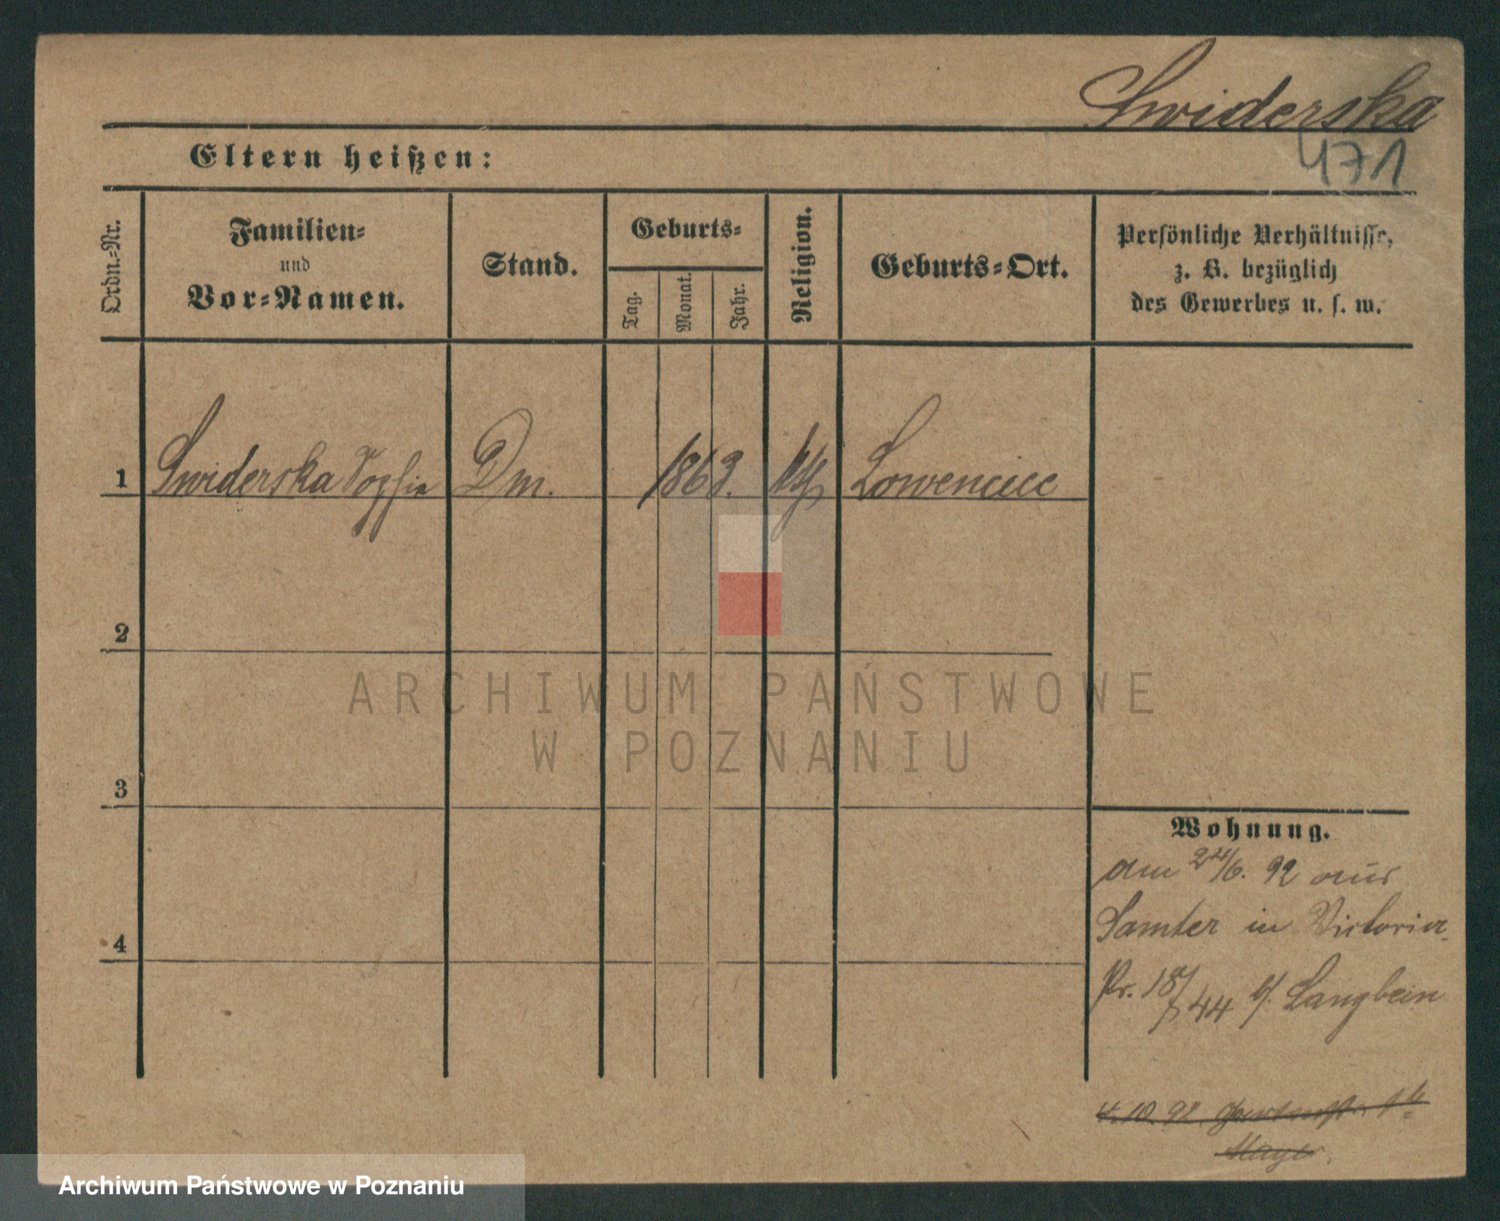 Swiderska
471
Eltern heißen:
Ordn.-Nr.
Familien-
und
Vor-Namen.
Stand.
Geburts-
Tag.
Monat.
Jahr.
Religion.
Geburts-Ort.
Persönliche Verhältnisse,
z. B. bezüglich
des Gewerbes u. s. w.
1 Swiderska Sophie Dm. 1863. kth Lowencice
2
ARCHIWUM PAŃSTWOWE
W POZNANIU
3
Wohnung.
am 24/6. 92 aus
Samter in Victoria
4
Pr. 44 b/ Langbein
4.10.92
Mayer
Archiwum Państwowe w Poznaniu